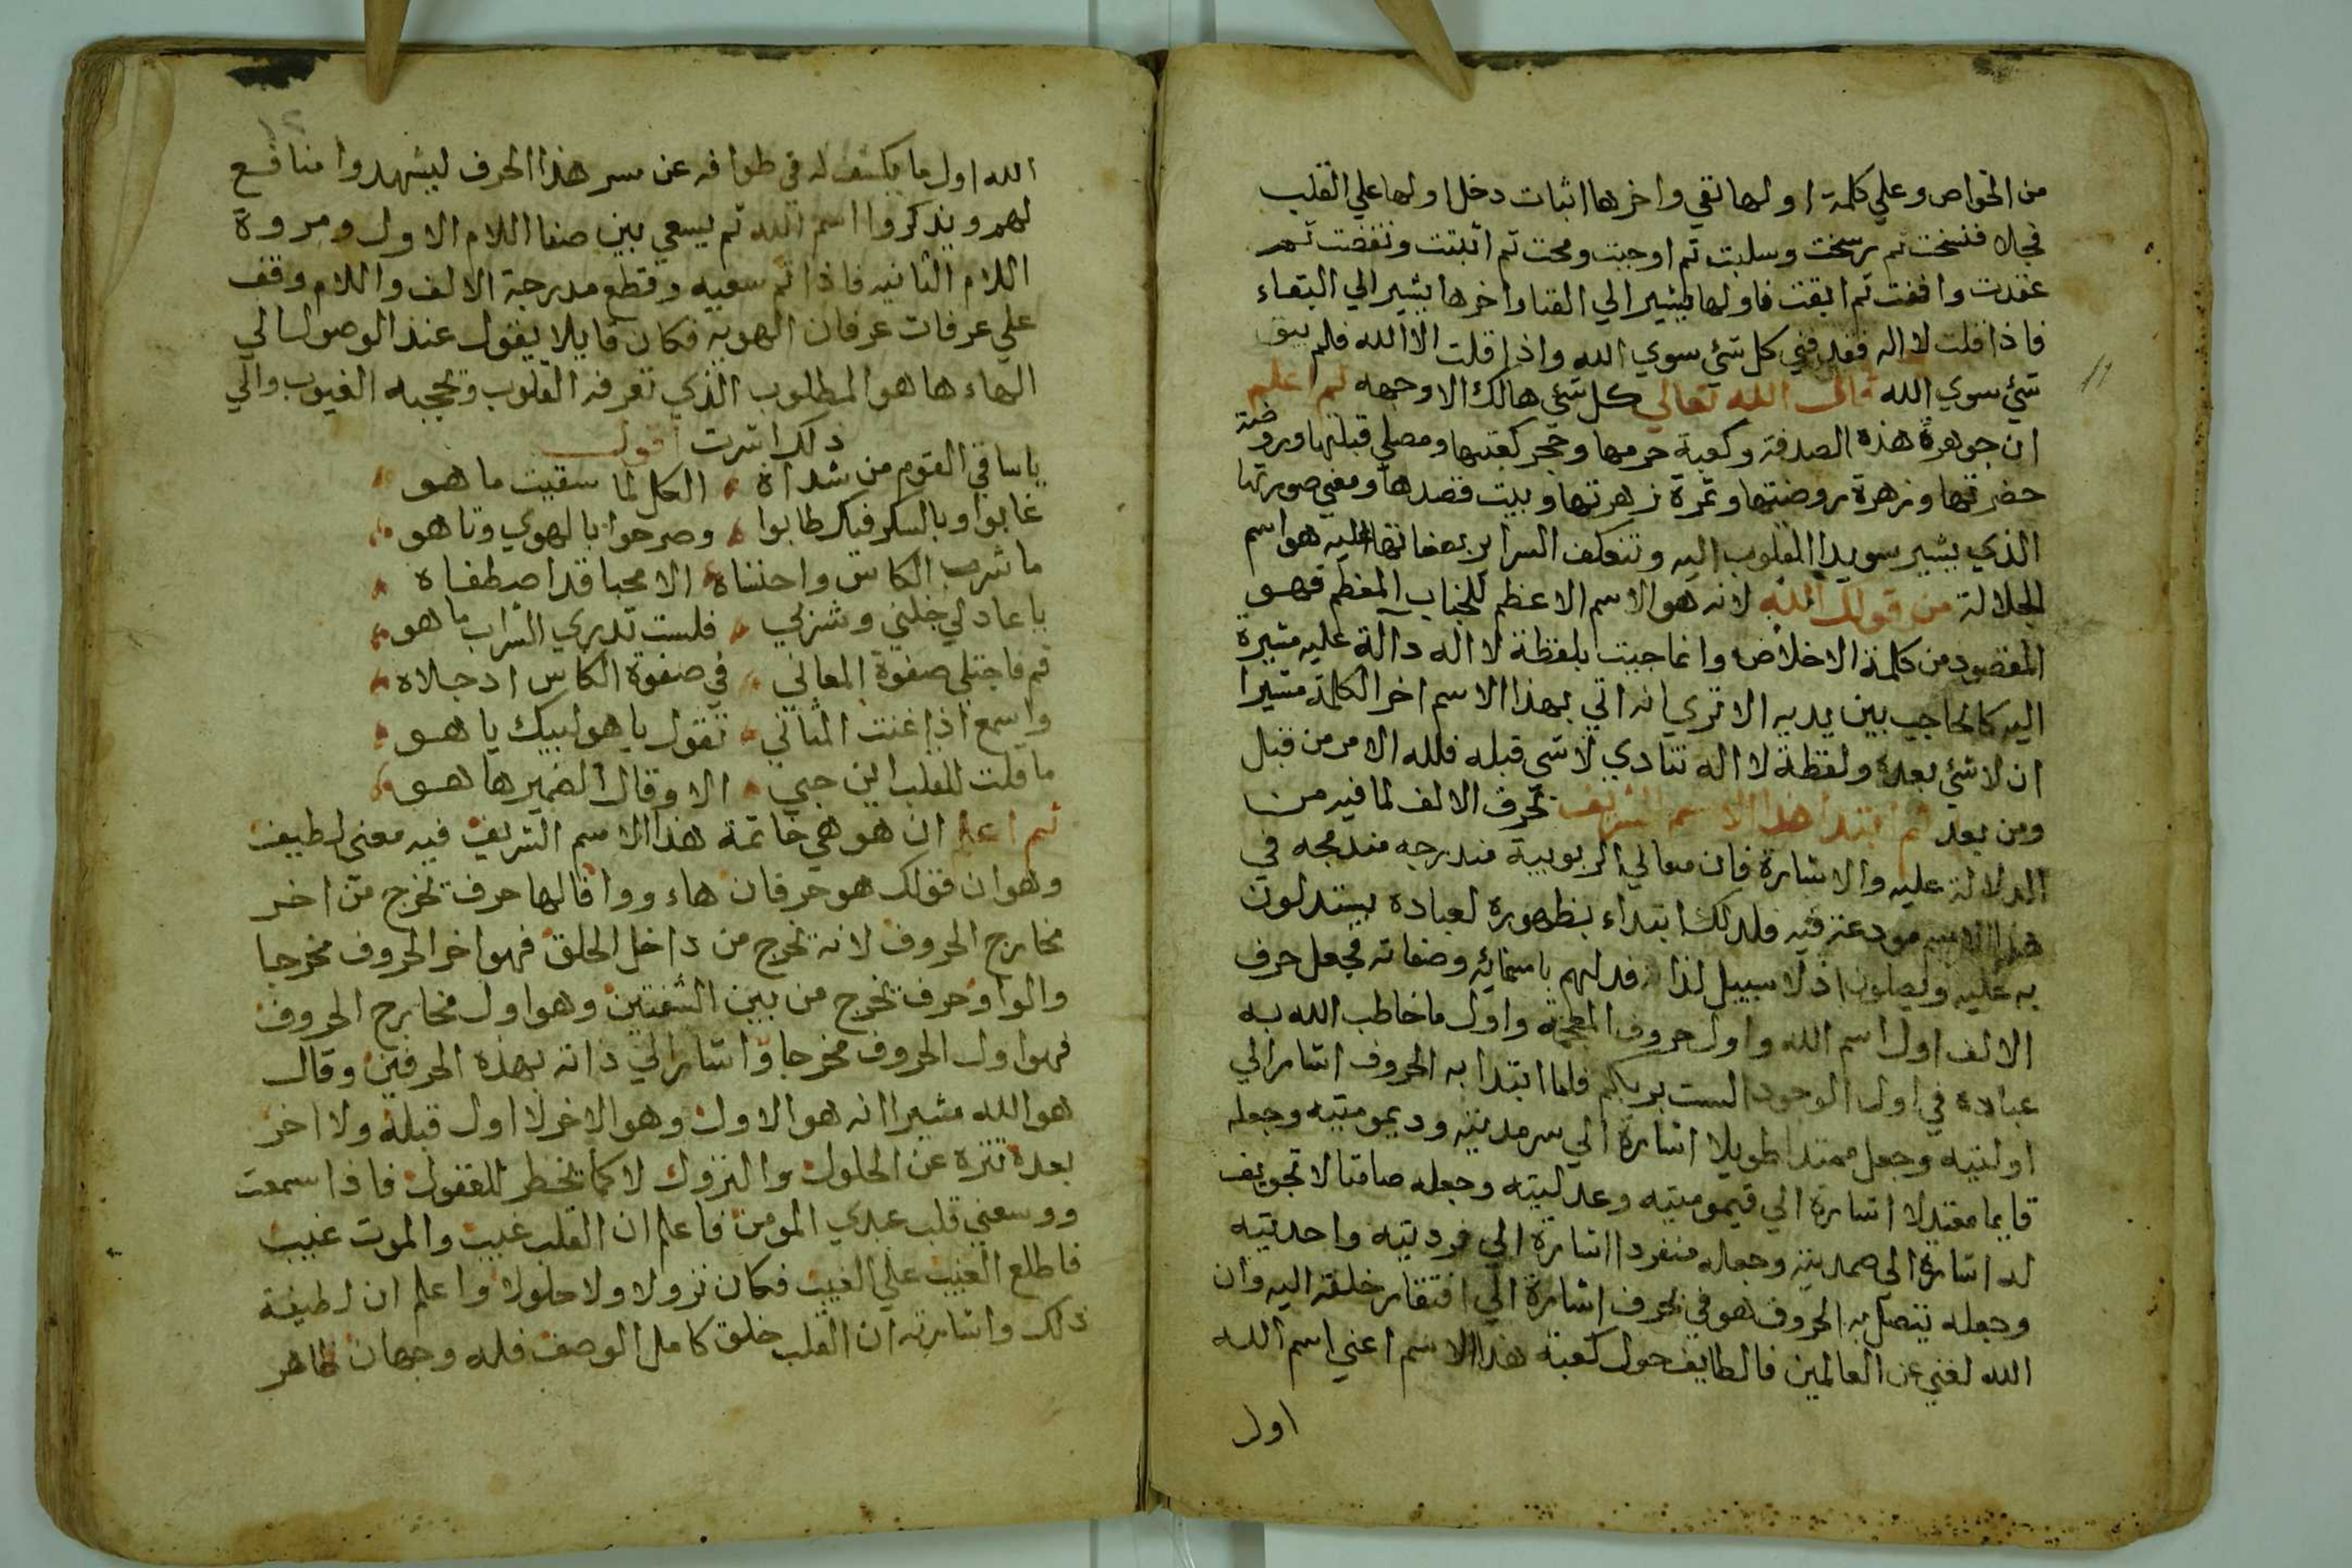 من الخواص وعلي كلمة اولها نفي واخرها اثبات دخل اولها علي القلب
فجلا فنسخت ثم رسخت وسلبت ثم اوجبت ومحت ثم اثبتت ونقضت ثم
عقدت وافنت ثم ابقت فاولها يشير الي الفنا واخرها يشير الي البقاء
فاذا قلت لا اله فقد فني كل شئ سوي الله واذا قلت الا الله فلم يبق
شئ سوي الله قال الله تعالي كل شئ هالك الا وجهه ثم اعلم
ان جوهرة هذه الصدفة وكعبة حرمها وحجر كعبتها ومصلي قبلتها وروضة
حضرتها وزهرة روضتها وثمرة زهرتها وبيت قصدها ومعني صورتها
الذي يشير سويدا القلوب اليه وتنعكف السراير بصفاتها عليه هو اسم
الجلالة من قولك الله لانه هو الاسم الاعظم للجناب المعظم فهو
المقصود من كلمة الاخلاص وانما جيت بلفظة لا اله دالة عليه مشيرة
اليه كالحاجب بين يديه الا تري انه اتي بهذا الاسم اخر الكلمة مشيرا
ان لا شئ بعده ولفظة لا اله تنادي لا شي قبله فلله الامر من قبل
ومن بعد ثم ابتدا هذا الاسم الشريف بحرف الالف لما فيه من
الدلالة عليه والاشارة فان معالي الربوبية مندرجه مندمجه في
هذا الاسم مودعة فيه فلذلك ابتداء بظهوره لعباده يستدلون
به عليه ويصلون اذ لا سبيل لذا فدلهم باسمائه وصفاته فجعل حرف
الالف اول اسم الله واول حروف المعجمه واول ما خاطب الله به
عباده في اول الوجود الست بربكم فلما ابتدا به الحروف اشار الي
اوليته وجعل ممتدا طويلا اشارة الي سرمديته وديموميته وجعله
قايما معتدلا اشارة الي قيوميته وعدليته وجعله صامتا لا تجويف
له اشارة الي صمديته وجعله منفردا اشارة الي فرديته واحديته
وجعله يتصل به الحروف هو في بحرف اشارة الي افتقار خلقه اليه وان
الله لغني عن العالمين فالطايف حول كعبة هذا الاسم اعني اسم الله
اول
١١
١٢
الله اول ما يكشف له في طوافه عن سر هذا الحرف ليشهدوا منافع
لهم ويذكروا اسم الله ثم يسعي بين صفا اللام الاول ومروة
اللام الثانيه فاذا تم سعيه وقطع مدرجة الالف واللام وقف
علي عرفات عرفان الهويه فكان قايلا يقول عند الوصول الي
الهاء ها هو المطلوب الذي تعرفه القلوب وتحجبه الغيوب والي
ذلك اشرت اقول
ياساقي القوم من شداه الكل لما سقيت ما هو
غابوا وبالسكر فيك طابوا وصرحوا بالهوي وتاهو
ما شرب الكاس واحتساه الا محبا قد اصطفاه
يا عاذلي خلني وشربي فلست تدري الشراب ما هو
قم فاجتلي صفوة المعاني في صفوة الكاس اذ جلاه
واسمع اذا غنت المثاني تقول يا هو لبيك يا هو
ما قلت للقلب اين حبي الا وقال الضمير ها هو
ثم اعلم ان هو هي خاتمة هذا الاسم الشريف فيه معني لطيف
وهو ان قولك هو حرفان هاء وواو فالها حرف تخرج من اخر
مخارج الحروف لانه تخرج من داخل الحلق فهو اخر الحروف مخرجا
والواو حرف تخرج من بين الشفتين وهو اول مخارج الحروف
فهو اول الحروف مخرجا واشار الي ذاته بهذه الحرفين وقال
هو الله مشيرا انه هو الاول وهو الاخر لا اول قبله ولا اخر
بعده تنزه عن الحلول والنزول لا كما تخطر للعقول فاذا سمعت
ووسعني قلب عبدي المومن فاعلم ان القلب غيب والموت غيب
فاطلع الغيب علي الغيب فكان نزولا ولا حلولا واعلم ان لطيفة
ذلك واشارته ان القلب خلق كامل الوصف فله وجهان ظاهر